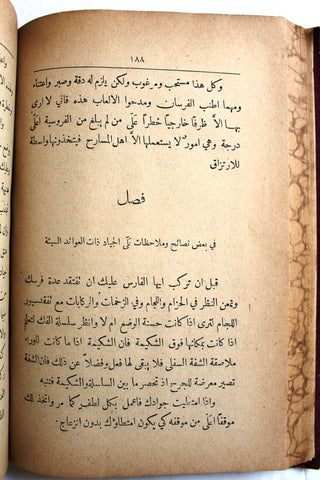 ١٨٨
وكل هذا مستحب ومرغوب ولكن يلزم له دقة وصبر واعتناء
ومهما اطنب الفرسان ومدحوا الالعاب هذه فاني لا ارى
بها الّا ظرفًا خارجيًا خطرًا على من لم يبلغ من الفروسية اعلى
درجة وهي امور لا يستعملها الّا اهل المسارح فيتخذونها واسطة
للارتزاق
فصل
في بعض نصائح وملاحظات على الجياد ذات العوائد السيئة
قبل ان تركب ايها الفارس عليك ان تفتقد عدة فرسك
وتمعن النظر في الحزام واللجام وفي الزخمات والركابات مع تفقد سيور
اللجام لترى اذا كانت حسنة الوضع ام لا وانظر سلسلة الفك لتعلم
اذا كانت بمكانها فوق الشكيمة فان الشكيمة اذا ما كانت للوراء
ملاصقة الشفة السفلى فلا يبقى لها فعل وفضلًا عن ذلك فان الشفة
تصير معرضة للجرح اذ تنحصر ما بين السلسلة والشكيمة فتنبه
واذا امتطيت جوادك فاعمل بكل لطف كما مر واتخذ لك
موقفًا اعلى من موقفه كي يكون امتطاؤك بدون انزعاج.